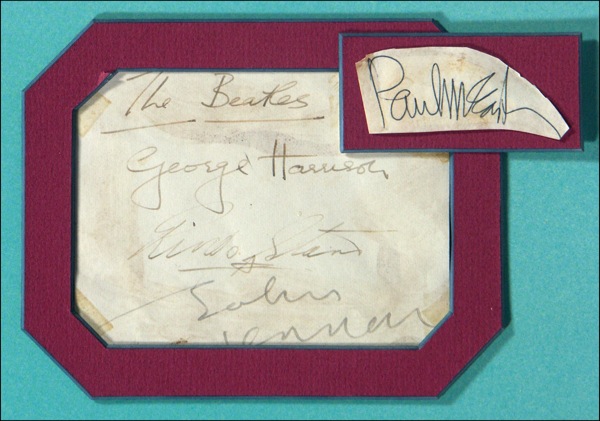 The Beatles
Paul McCartney
George Harrison
Ringo Starr
John
Lennon